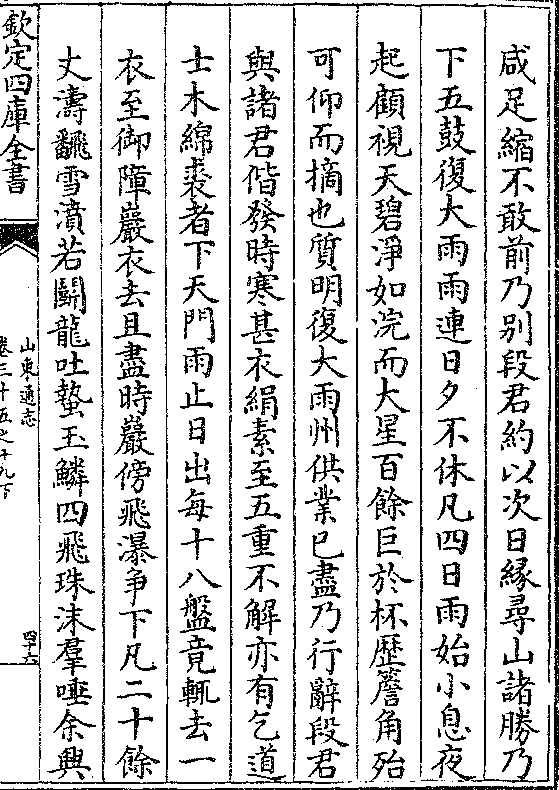 咸足縮不敢前乃别段君約以次日縁尋山諸勝乃
下五鼓復大雨雨連日夕不休凡四日雨始小息夜
起顧視天碧淨如浣而大星百餘巨於杯歴簷角殆
可仰而摘也質明復大雨州供業已盡乃行辭段君
與諸君偕發時寒甚衣絹素至五重不解亦有乞道
士木綿裘者下天門雨止日出每十八盤竟輒去一
衣至御障巖衣去且盡時巖傍飛瀑争下凡二十餘
丈濤飜雪濆若鬭龍吐蟄玉鱗四飛珠沫羣唾余興
欽定四庫全書
山東通志
卷三十五之十九下
四十六